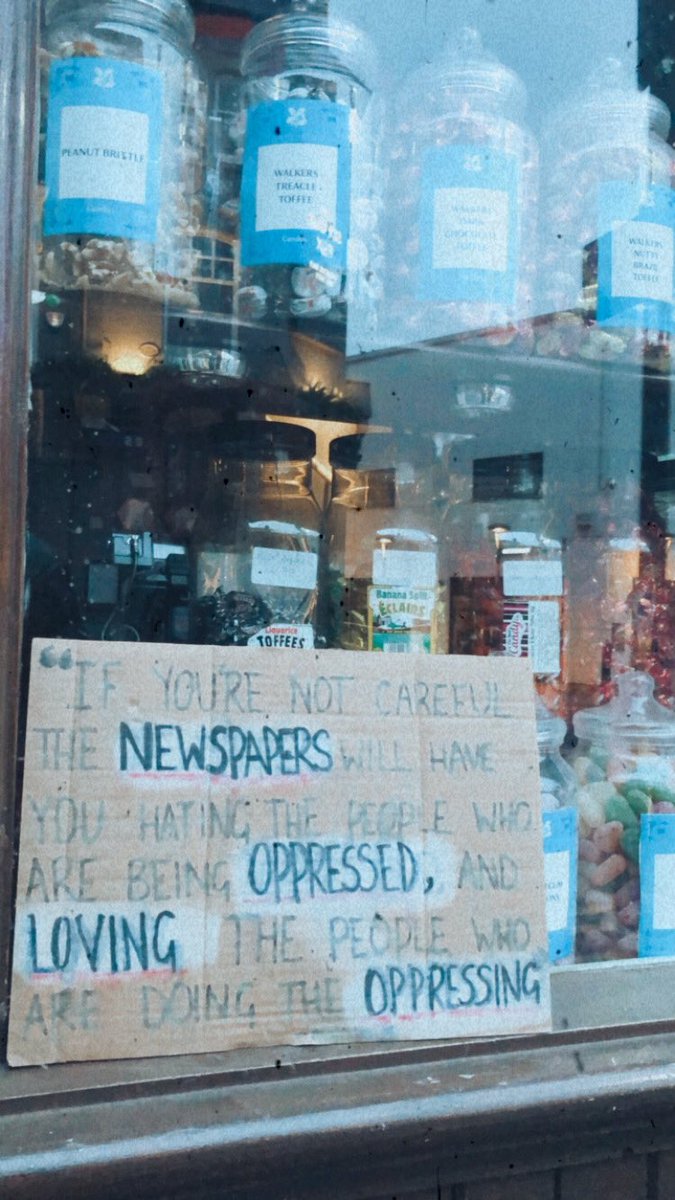 PEANUT BRITTLE
WALKERS
TREACLE
TOFFEE
WALKERS
NUTTY
BRAZIL
TOFFEE
Banana Split
ECLAIRS
Liquorice
TOFFEES
Candy
“IF YOU'RE NOT CAREFUL
THE NEWSPAPERS WILL HAVE
YOU HATING THE PEOPLE WHO
ARE BEING OPPRESSED, AND
LOVING THE PEOPLE WHO
ARE DOING THE OPPRESSING